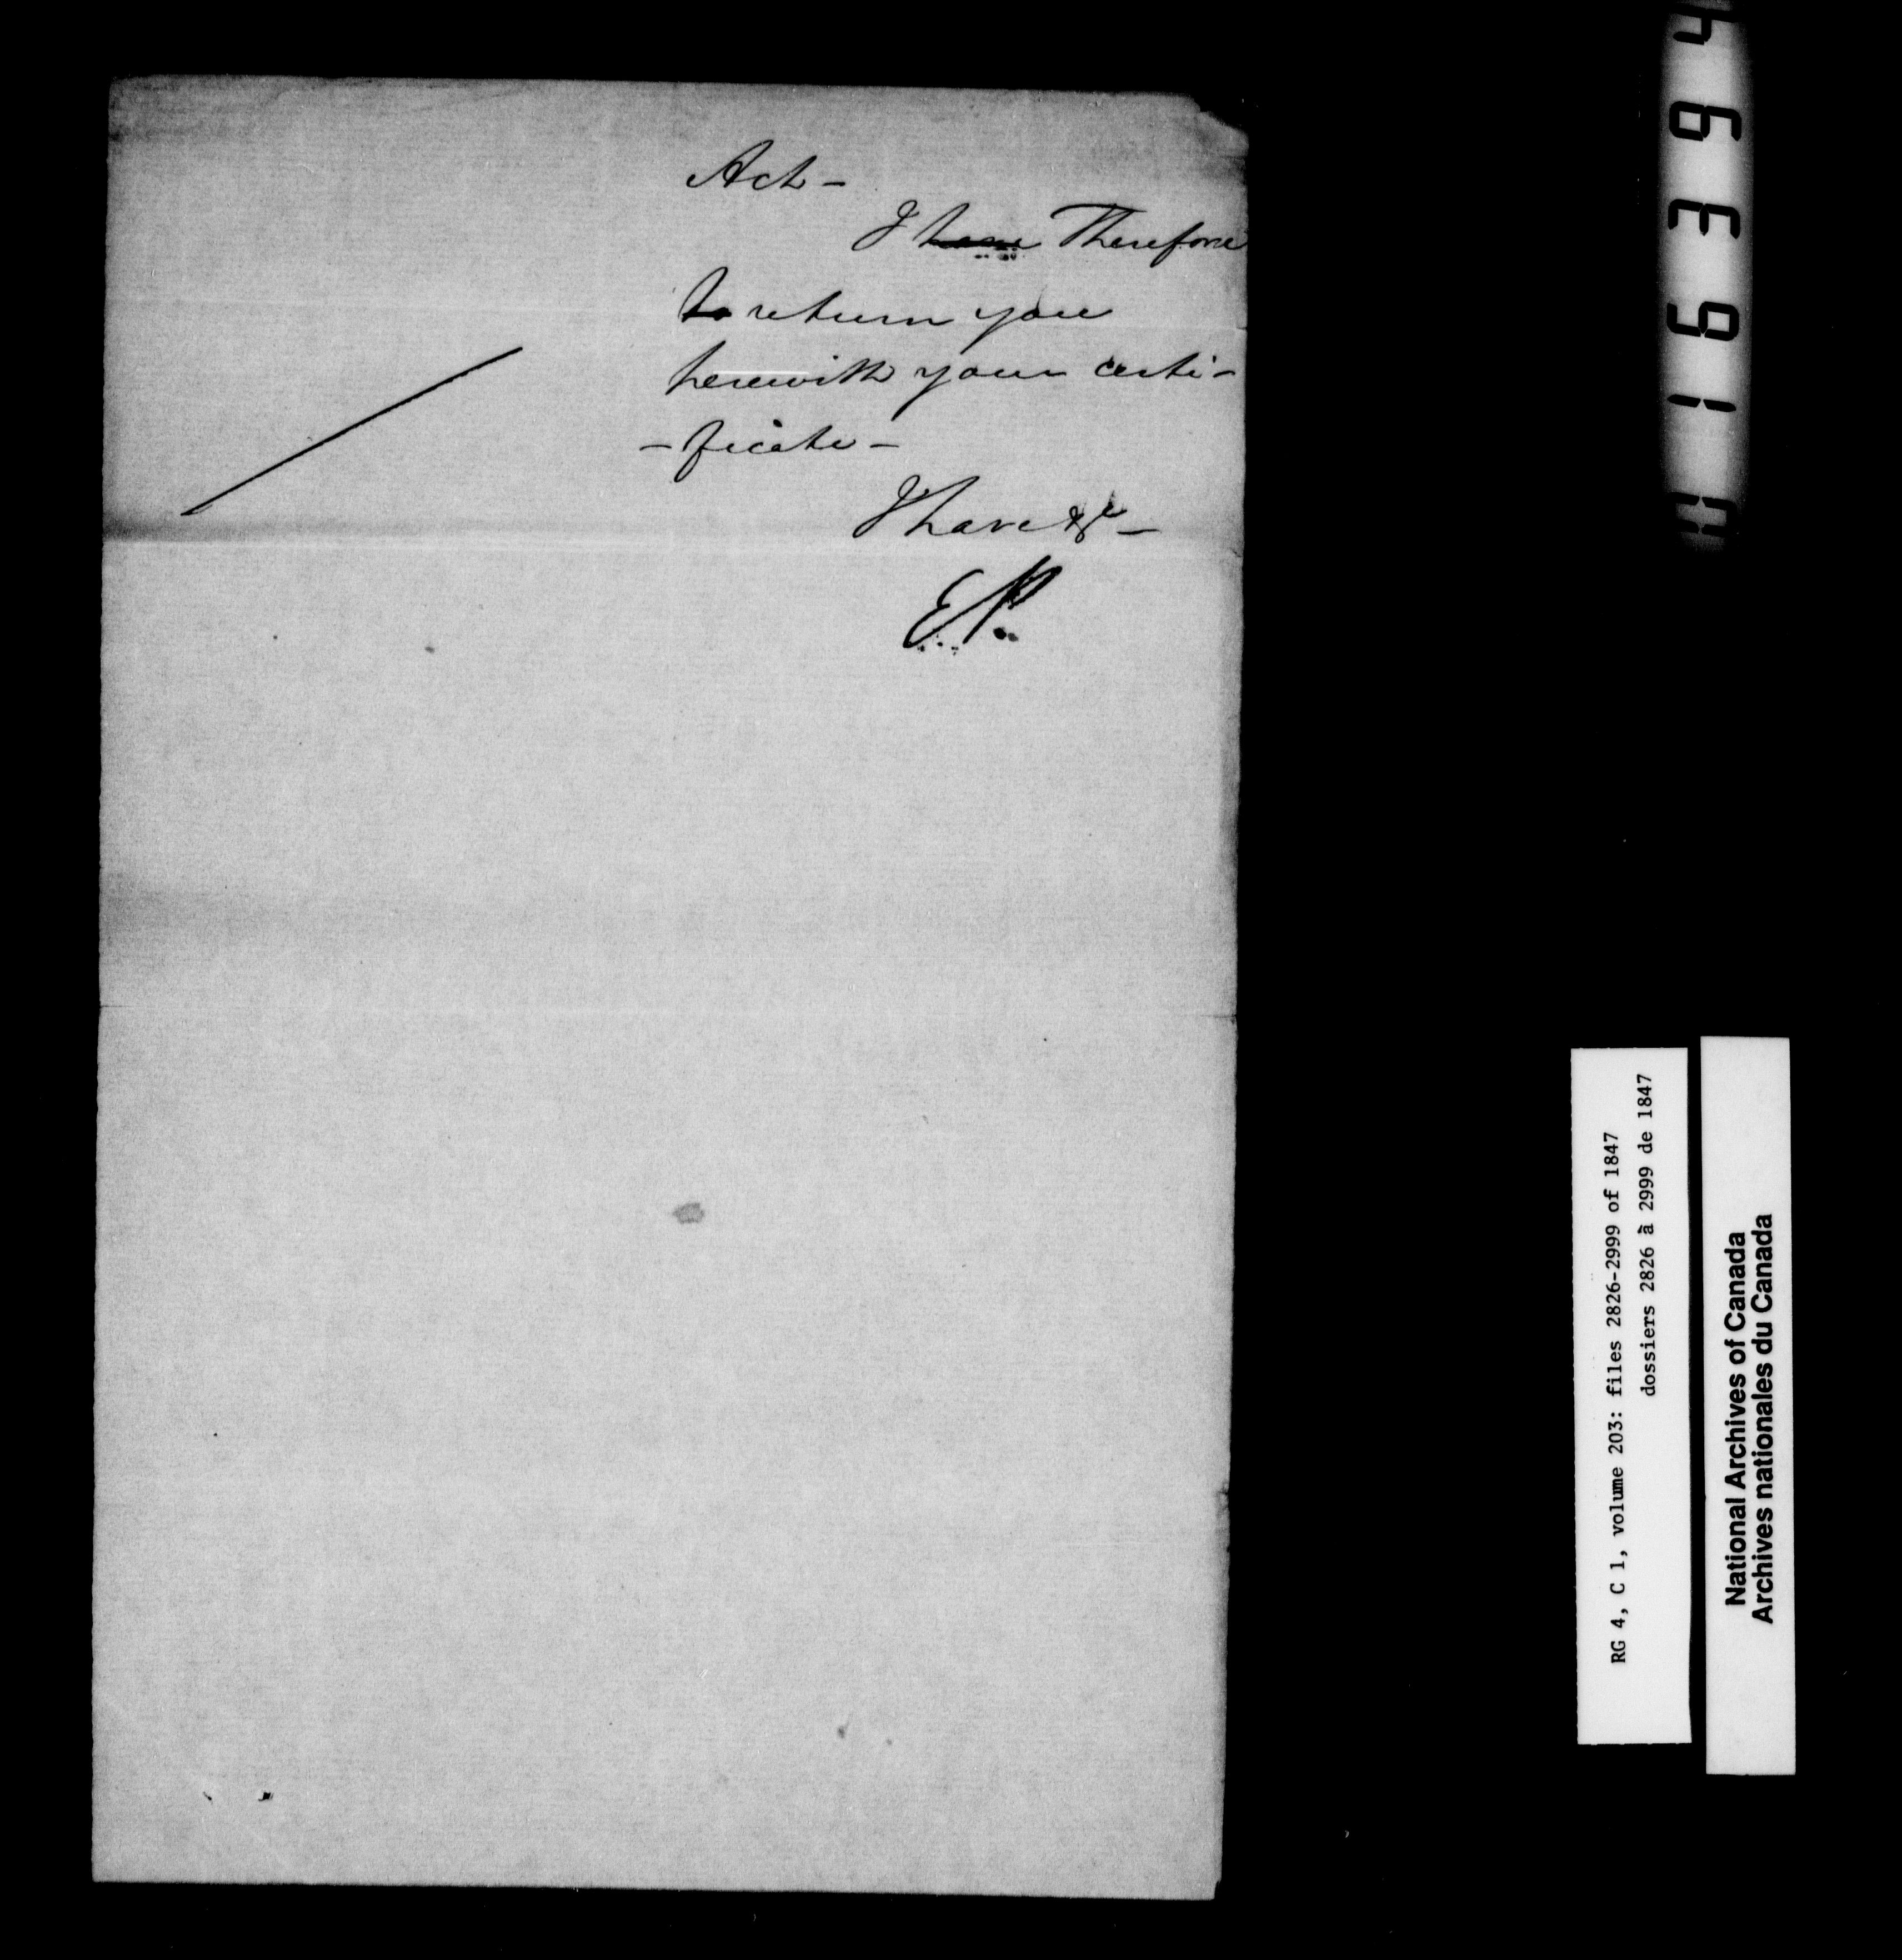 Act -
I have Therefore
to return you
herewith your certi-
- ficate -
I have &c -
EP.
16394
RG 4, C 1, volume 203: files 2826-2999 of 1847
dossiers 2826 à 2999 de 1847
National Archives of Canada
Archives nationales du Canada